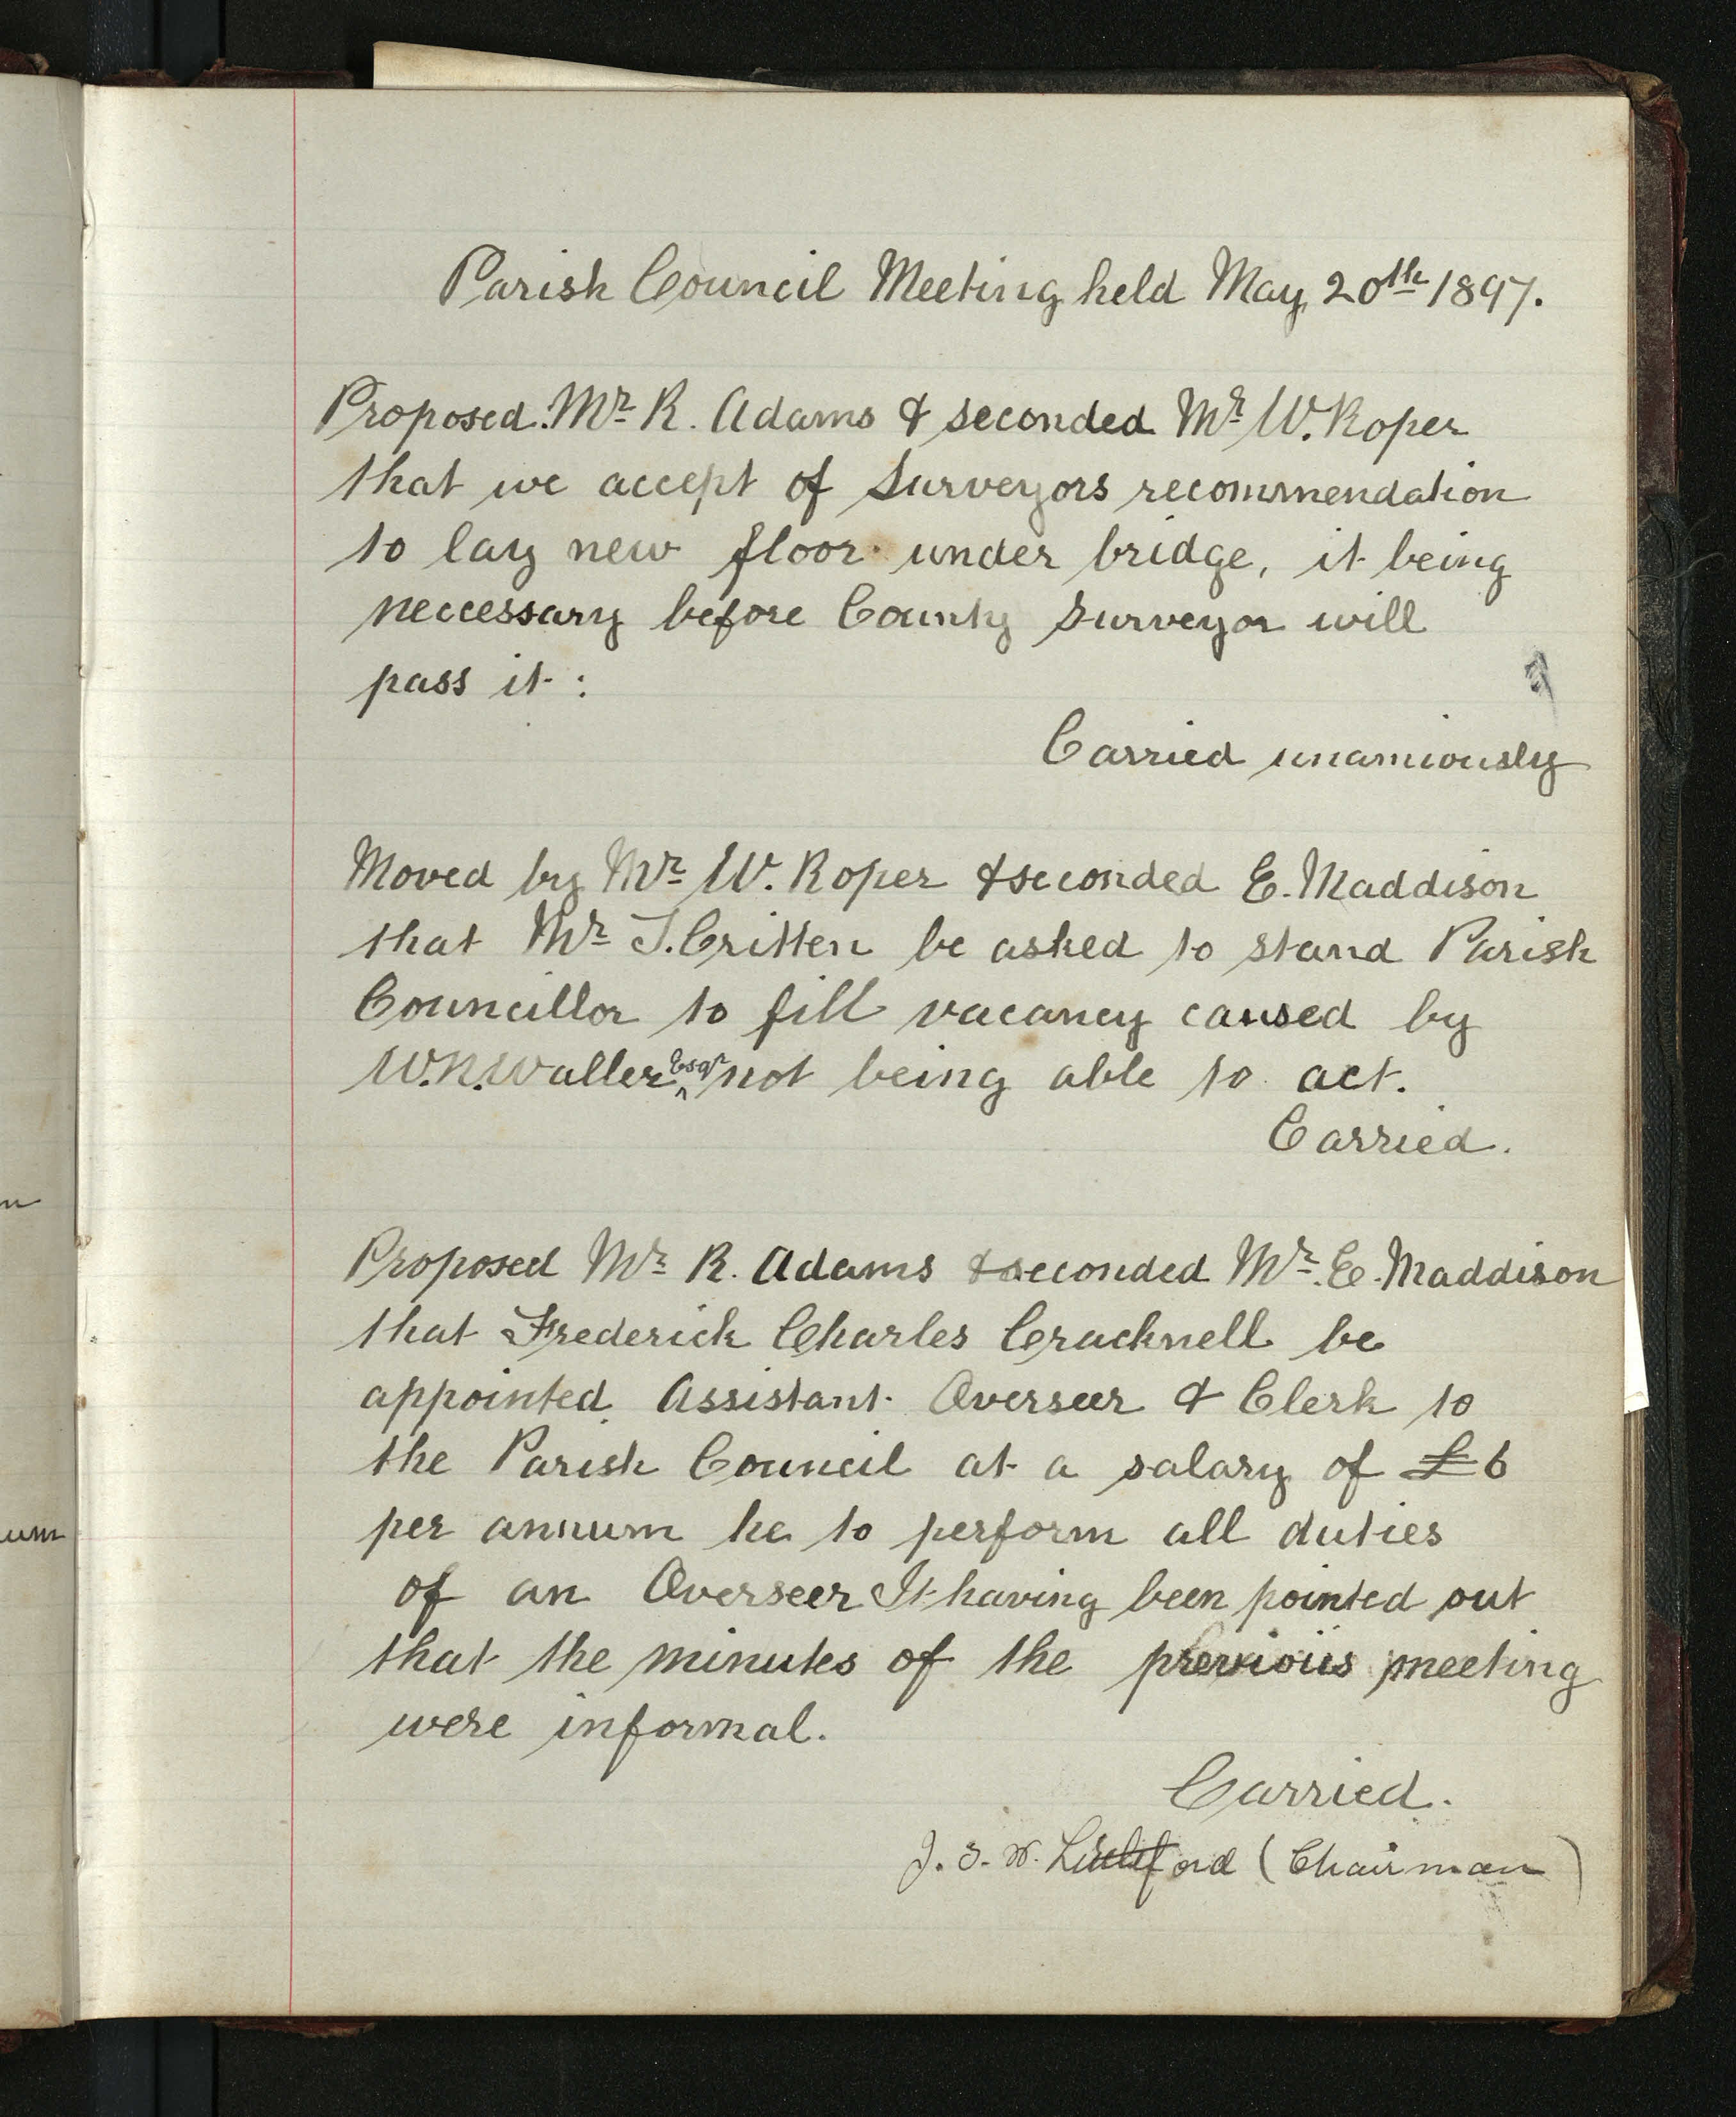 Parish Council Meeting held May 20th 1897.
Proposed Mr R. Adams & seconded Mr W. Roper
that we accept of Surveyors recommendation
to lay new floor under bridge, it being
neccessary before County Surveyor will
pass it :
Carried unamiously
Moved by Mr W. Roper & seconded E. Maddison
that Mr J. Critten be asked to stand Parish
Councillor to fill vacancy caused by
W.N. Waller Esqr not being able to act.
Carried.
Proposed Mr R. Adams & seconded Mr E. Maddison
that Frederick Charles Cracknell be
appointed Assistant Overseer & Clerk to
the Parish Council at a salary of £6
per annum he to perform all duties
of an Overseer It having been pointed out
that the minutes of the previous meeting
were informal.
Carried.
J. S. W. (Chairman)